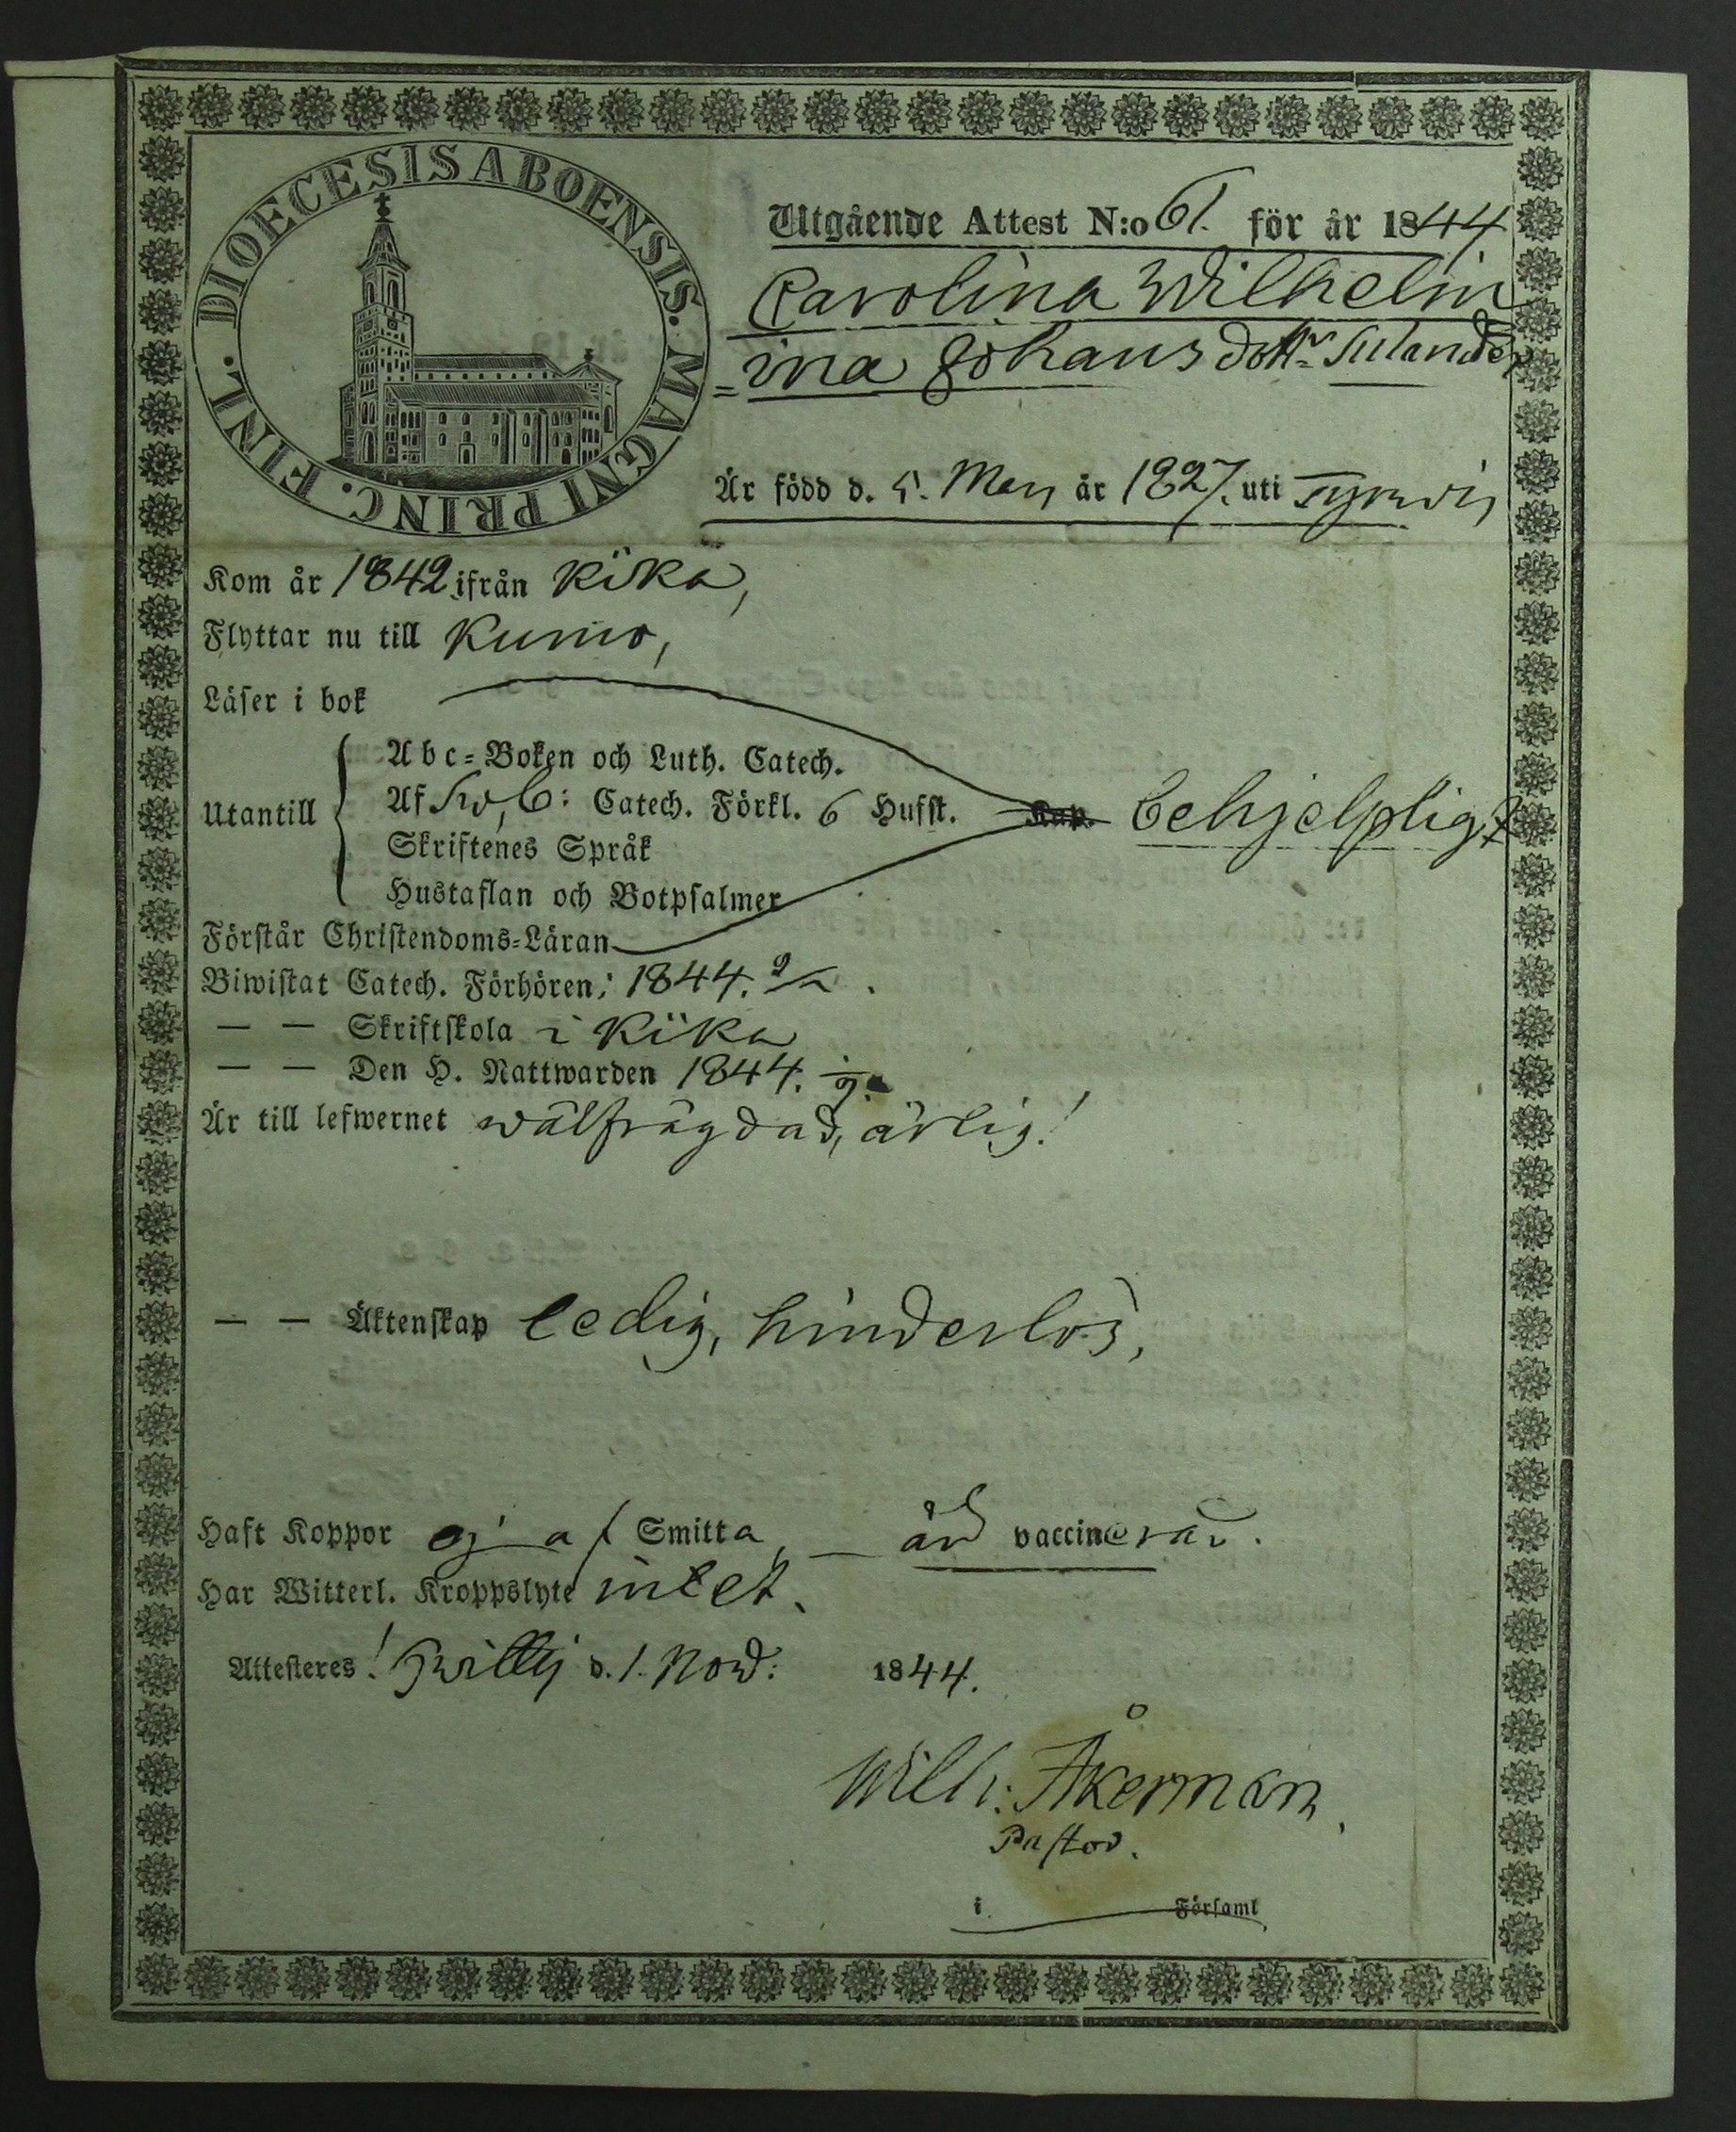 DIOECESIS ABOENSIS. MAGNI PRINC. FINL.
Utgående Attest N:o 61. för år 1844
Carolina Wilhelm
=ina Johans dottr
Är född d. 5. Maij år 1827. uti Tyrvis
Kom år 1842 ifrån Kika,
Flyttar nu till Kumo,
Läser i bok
Utantill
Abc=Boken och Luth. Catech.
Af Sv,b: Catech. Förkl. 6 Hufst. Kap. behjelpligt
Skriftenes Språk
Hustaflan och Botpsalmer
Förstår Christendoms=Läran
Biwistat Catech. Förhören; 1844.
— — Skriftskola i Kika
— — Den H. Nattwarden 1844.
Är till lefwernet wälfrägdad, ärlig!
— — Äktenskap ledig, hinderlös,
Haft Koppor ej af Smitta, — är vaccinerad.
Har Witterl. Kroppslyte intet.
Attesteres! Hvittis d. 1. Nov: 1844.
Wilh: Åkerman,
Pastor.
i Församl